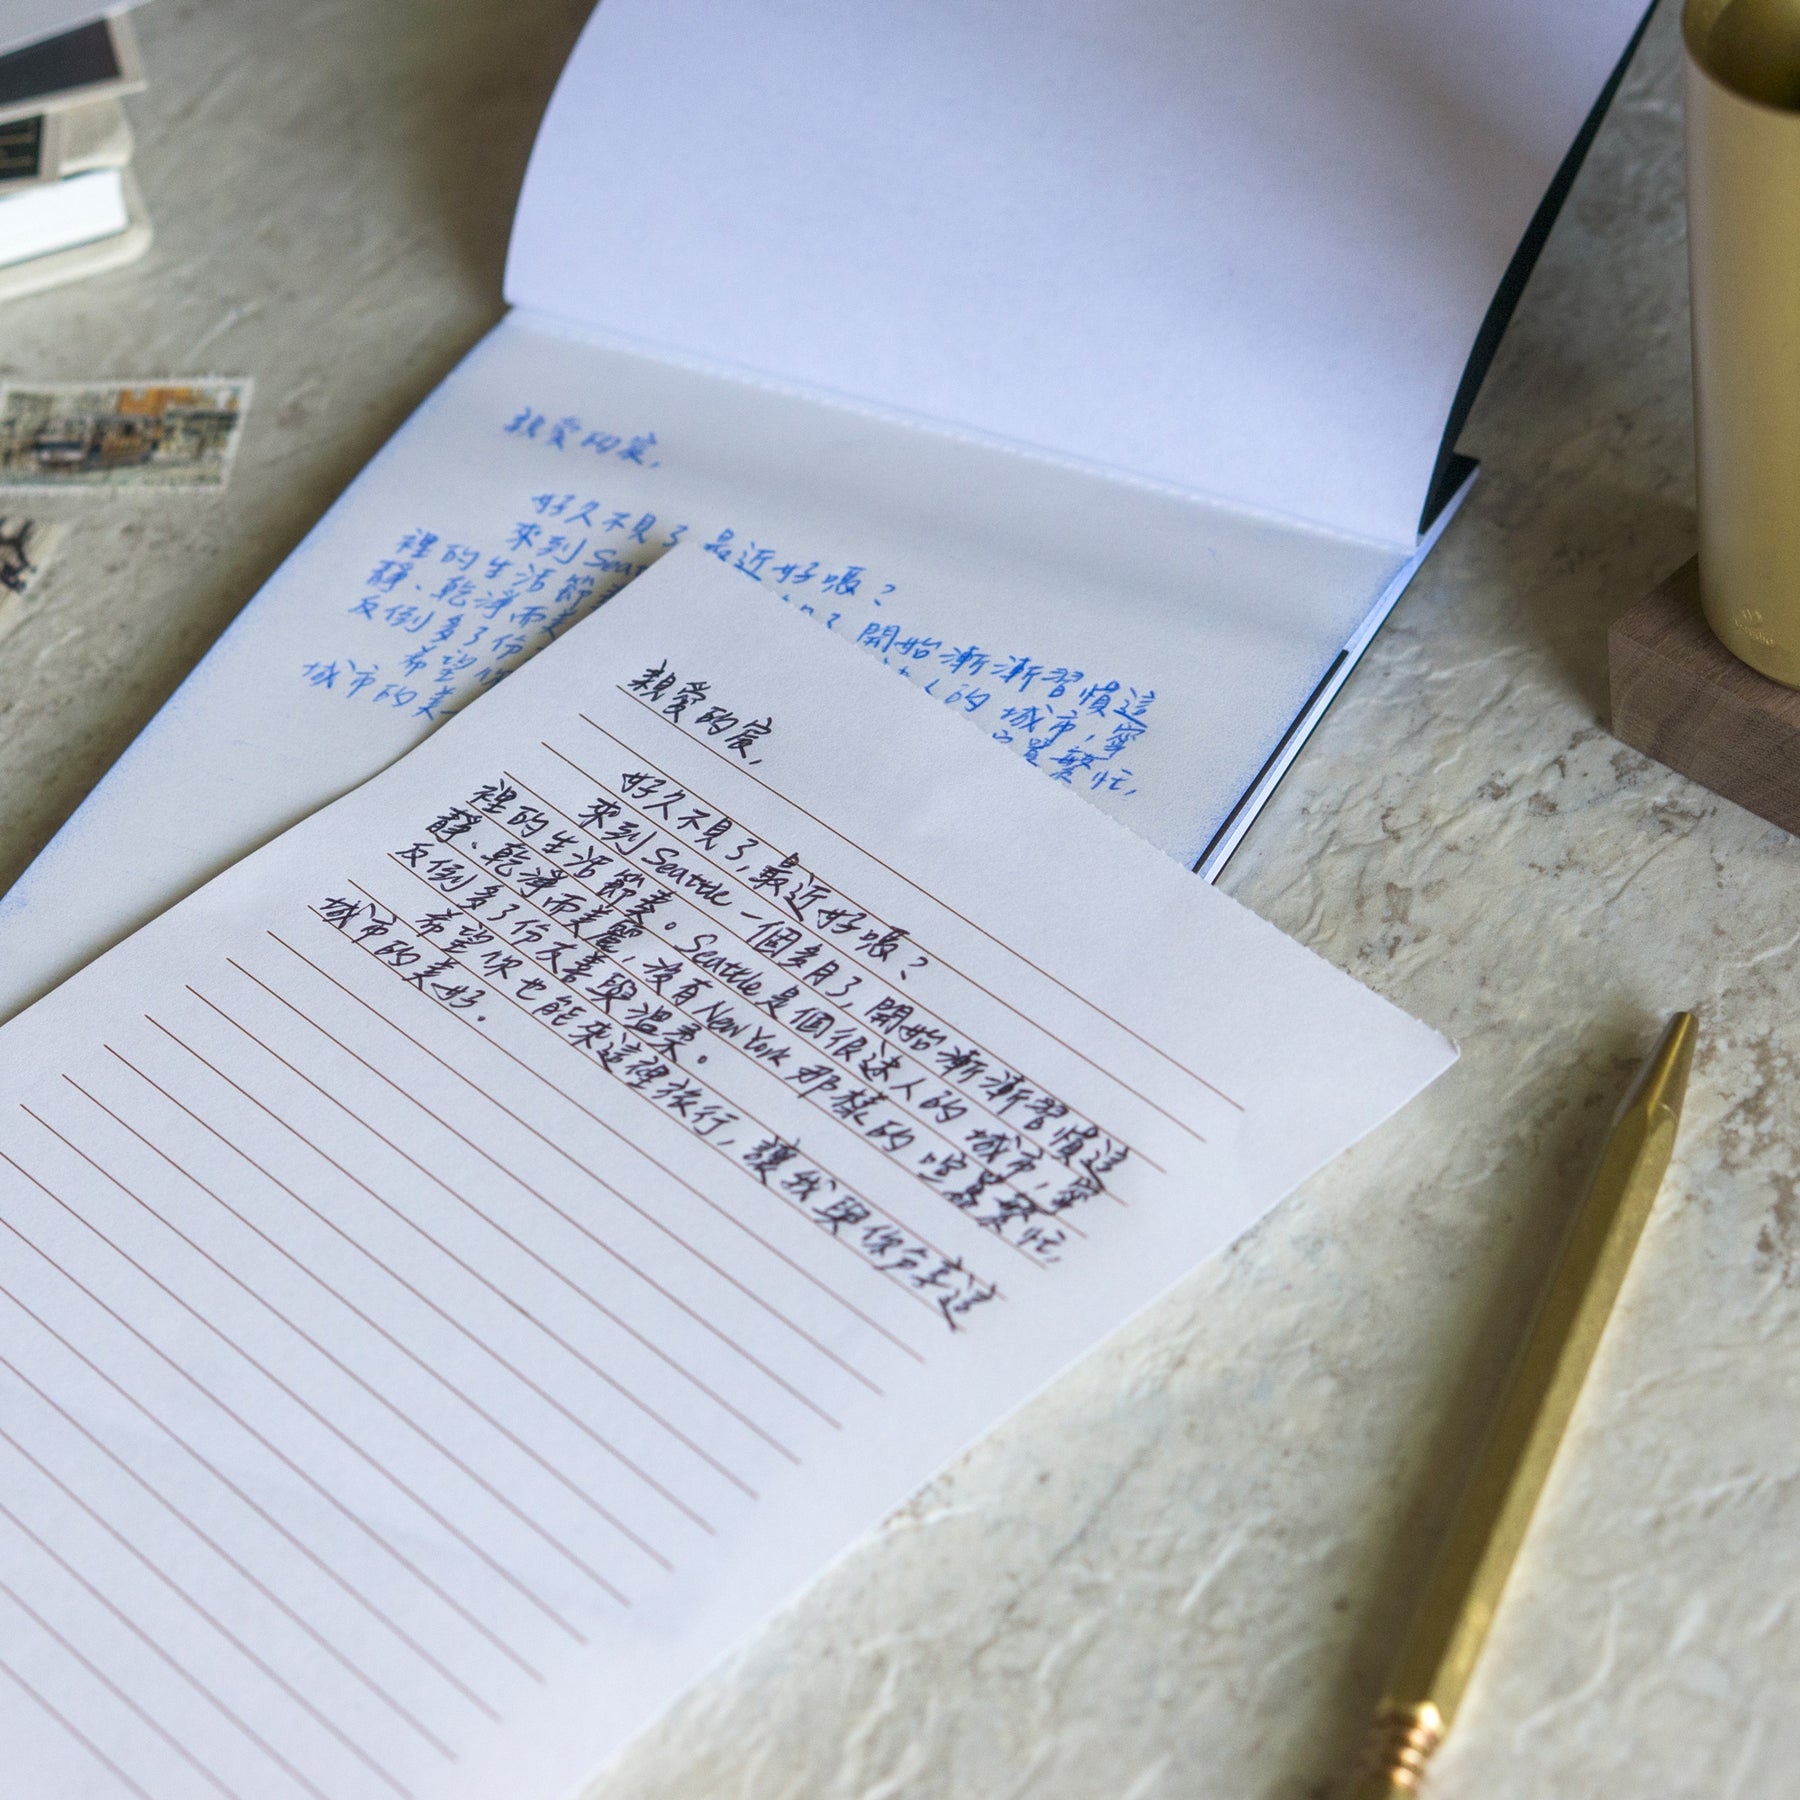 親愛的宸,
好久不見了,最近好嗎?
來到Seattle一個多月了,開始漸漸習慣這
裡的生活節奏。Seattle是個很迷人的城市,寧
靜、乾淨而美麗,沒有New York那樣的喧囂繁忙,
反倒多了份友善與溫柔。
希望你也能來這裡旅行,讓我與你分享這
城市的美好。
親愛的宸,
好久不見了 最近好嗎?
來到Seat 了 開始漸漸習慣這
裡的生活節 人的城市,寧
靜、乾淨而美 囂繁忙,
反倒多了份
希望你
城市的美